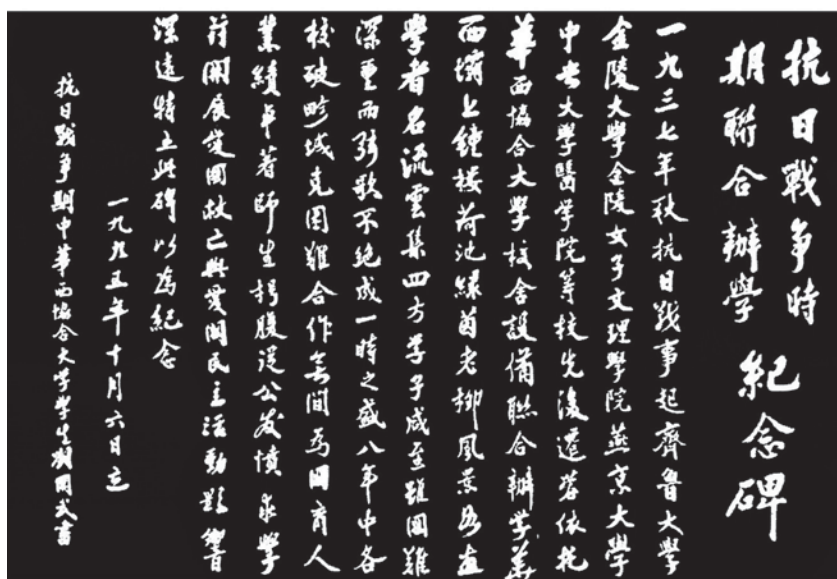 抗日戰爭時
期聯合辦學
紀念碑
一九三七年秋抗日戰事起齊魯大學
金陵大學金陵女子文理學院燕京大學
中央大學醫學院等校先後遷蓉依托
華西協合大學校舍設備聯合辦学華
西壩上鐘樓荷池綠茵老柳風景如畫
學者名流雲集四方学子咸至雖國難
深重而弦歌不絕成一時之盛八年中各
校破畛域克困難合作無間為國育人
業績卓著師生枵腹從公發憤求學
開展愛國救亡與愛國民主活動影響
深遠特立此碑以為紀念
一九九五年十月六日立
抗日戰爭期中華西協合大学學生書